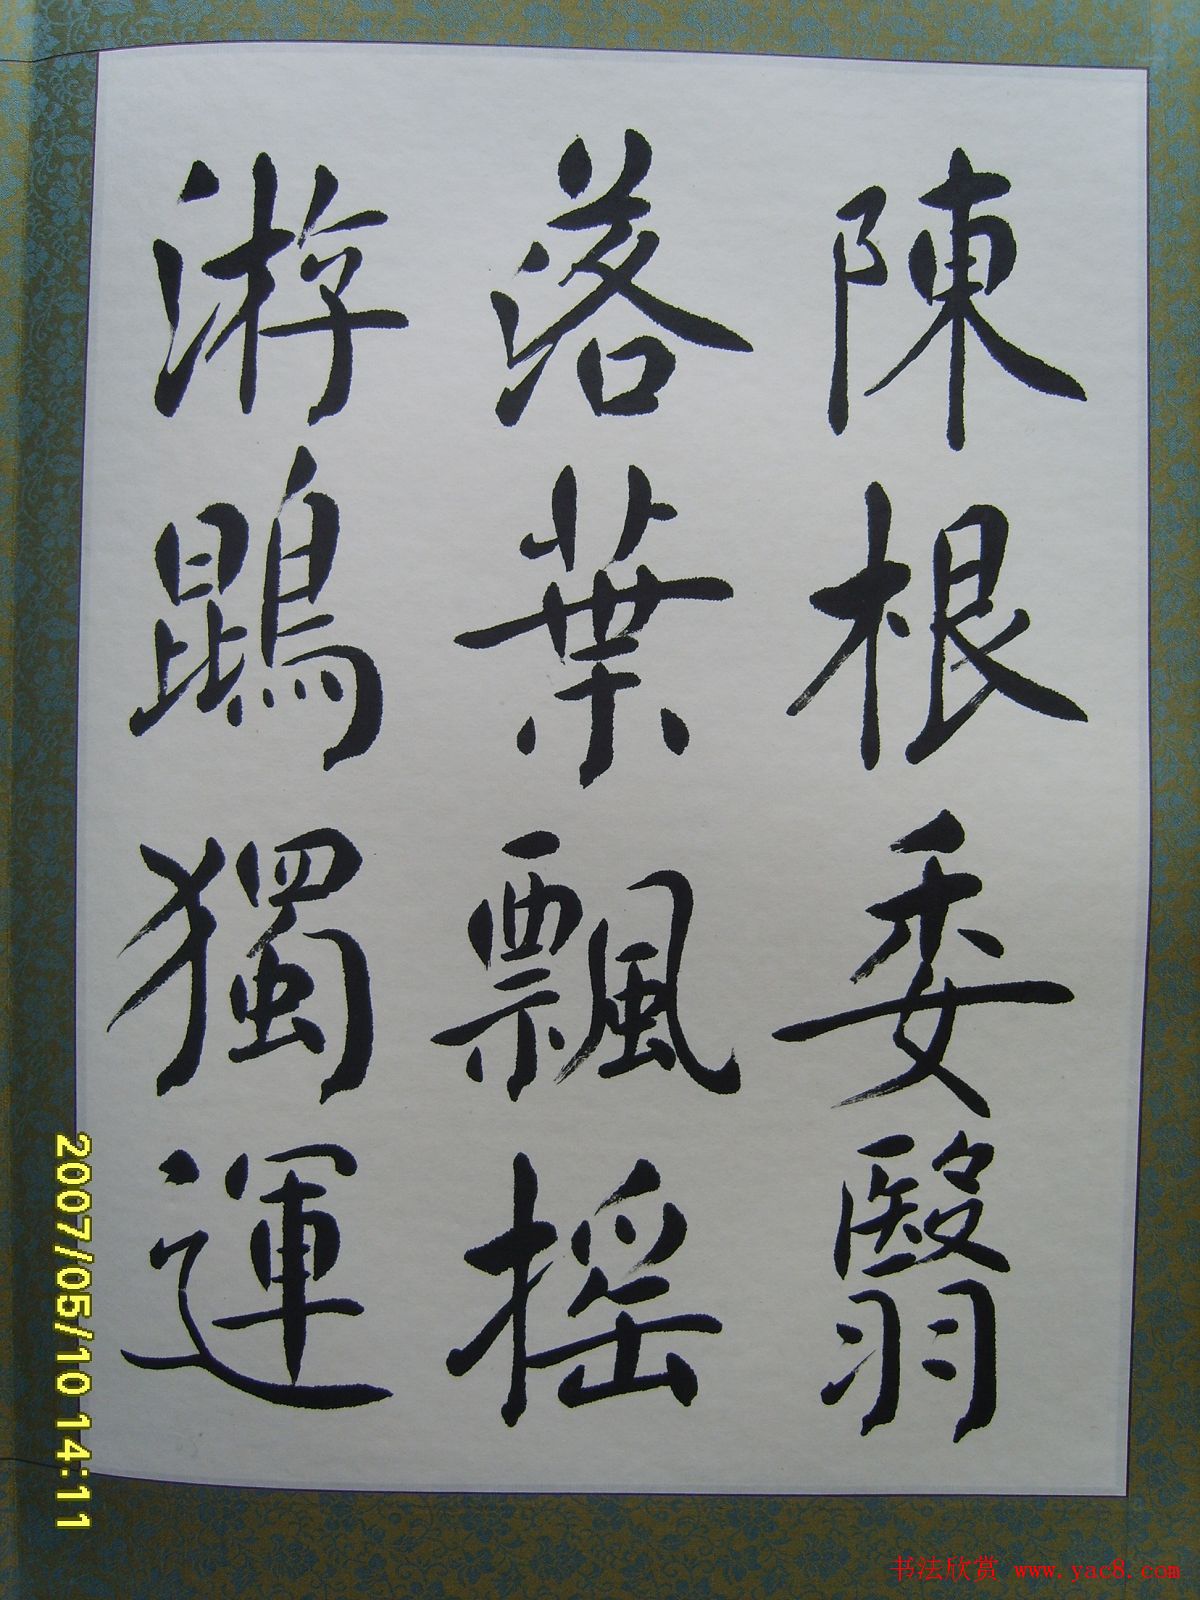 陳根委翳
落葉飄摇
游鵾獨運
2007/05/10 14:11
书法欣赏 www.yac8.com